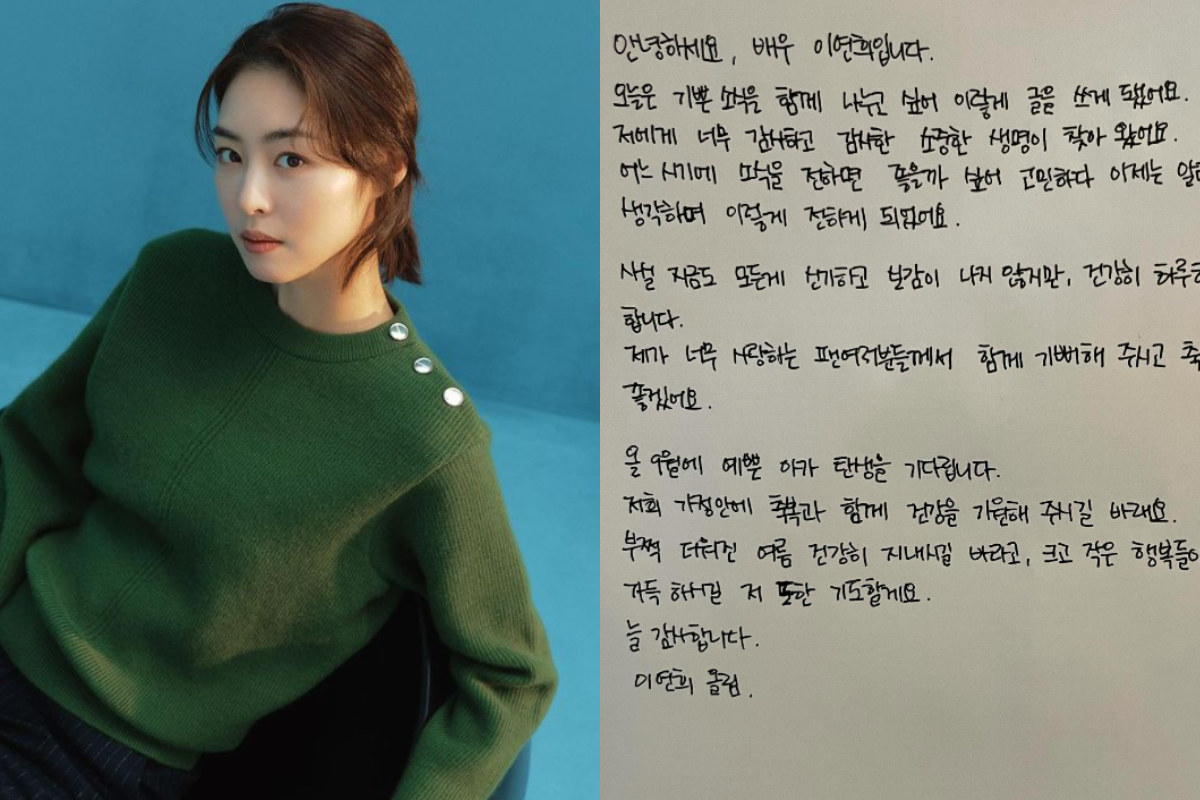 안녕하세요, 배우 이연희입니다.
오늘은 기쁜 소식을 함께 나누고 싶어 이렇게 글을 쓰게 됐어요.
저에게 너무 감사하고 감사한 소중한 생명이 찾아 왔어요.
어느 시기에 소식을 전하면 좋을까 싶어 고민하다 이제는
생각하며 이렇게 전하게 되었어요.
사실 지금도 모든게 신기하고 실감이 나지 않지만, 건강히
합니다.
제가 너무 사랑하는 팬여러분들께서 함께 기뻐해 주시고
좋겠어요.
올 9월에 예쁜 아가 탄생을 기다립니다.
저희 가정안에 축복과 함께 건강을 기원해 주시길 바래요.
부쩍 더워진 여름 건강히 지내시길 바라고, 크고 작은 행복들이
가득 하시길 저 또한 기도할게요.
늘 감사합니다.
이연희 올림.